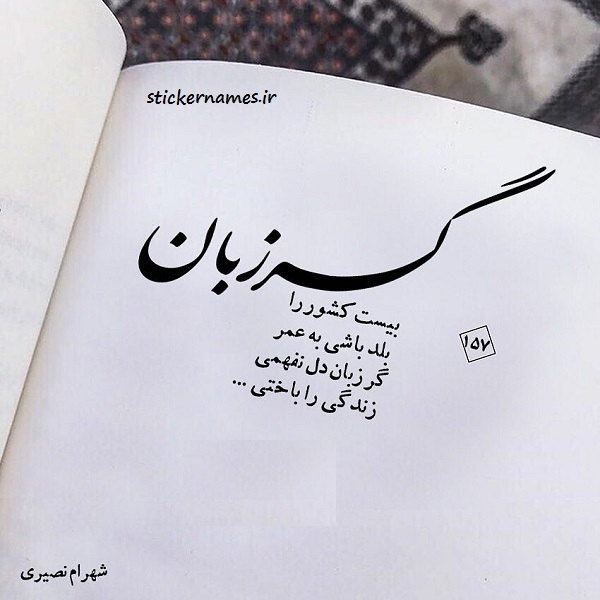 stickernames.ir
گر زبان
بیست کشور را
بلد باشی به عمر
گر زبان دل نفهمی
زندگی را باختی ...
شهرام نصیری